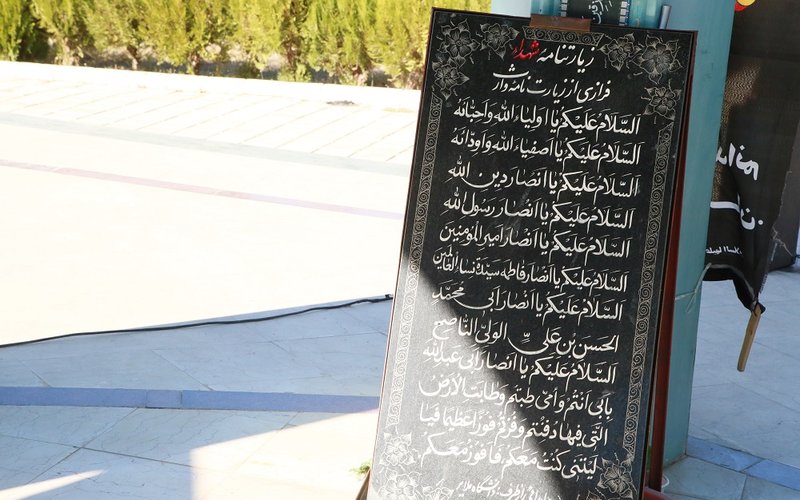 زیارتنامه شهداء
فرازی از زیارت نامه وارث
اَلسَّلامُ عَلَیْکُمْ یا اَولِیاءَ اللهِ وَاَحِبّائَهُ
اَلسَّلامُ عَلَیْکُمْ یا اَصفِیاءَ اللهِ وَاَوِدّائَهُ
اَلسَّلامُ عَلَیْکُمْ یا اَنصارَ دینِ اللهِ
اَلسَّلامُ عَلَیْکُمْ یا اَنصارَ رَسُولِ اللهِ
اَلسَّلامُ عَلَیْکُمْ یا اَنصارَ اَمیرِالمُؤمِنینَ
اَلسَّلامُ عَلَیْکُمْ یا اَنصارَ فاطِمَه سَیِّدَةِ نِساءِ العالَمینَ
اَلسَّلامُ عَلَیْکُمْ یا اَنصارَ اَبی مُحَمَّد
الحَسَنِ بْنِ عَلیٍّ الوَلِیِّ النّاصِحِ
اَلسَّلامُ عَلَیْکُمْ یا اَنصارَ اَبی عَبدِاللهِ
بِاَبی اَنْتُمْ وَ اُمّی طِبْتُمْ وَ طابَتِ الاَرْضُ
الَّتی فیها دُفِنْتُمْ وَ فُزْتُمْ فَوْزاً عَظیماً فَیا
لَیْتَنی کُنْتُ مَعَکُمْ فَاَفُوزَ مَعَکُمْ